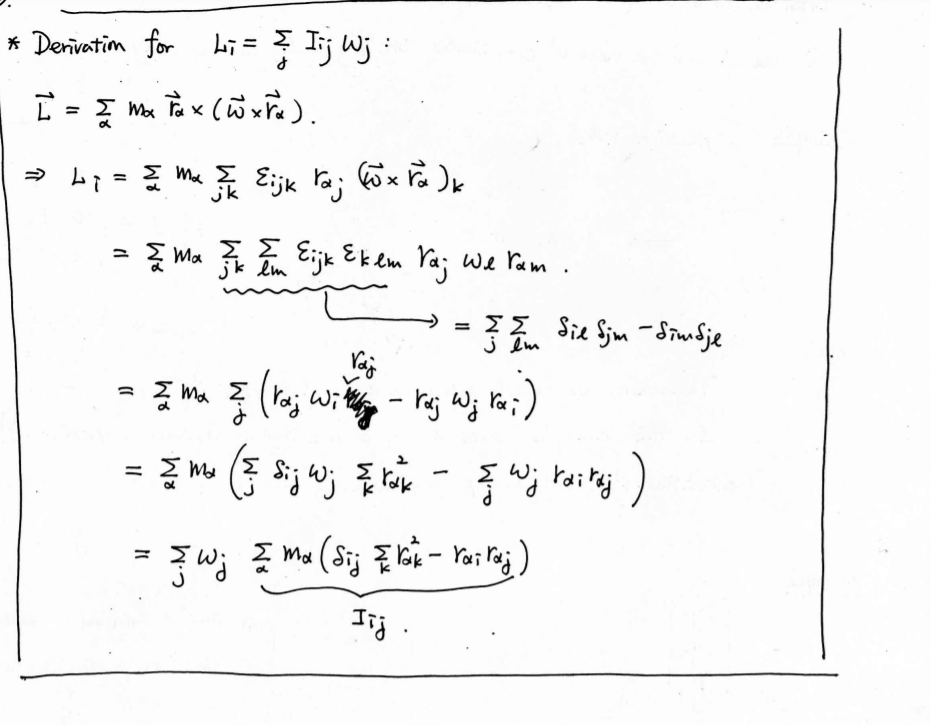 * Derivation for Lᵢ = Σ_j Iᵢⱼ ωⱼ :
L⃗ = Σ_α m_α r⃗_α × (ω⃗ × r⃗_α).
⇒ Lᵢ = Σ_α m_α Σ_jk ε_ijk r_αj (ω⃗ × r⃗_α)_k
= Σ_α m_α Σ_jk Σ_lm ε_ijk ε_klm r_αj ω_l r_αm .
→ = Σ_j Σ_lm δ_il δ_jm − δ_im δ_jl
r_αj
= Σ_α m_α Σ_j (r_αj ω_i − r_αj ω_j r_αi)
= Σ_α m_α (Σ_j δ_ij ω_j Σ_k r_αk² − Σ_j ω_j r_αi r_αj)
= Σ_j ω_j Σ_α m_α (δ_ij Σ_k r_αk² − r_αi r_αj)
I_ij .